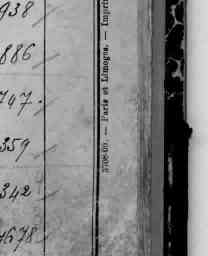 938
886
747.
359
342
1678
3708-09. — Paris et Limoges. — Imprim